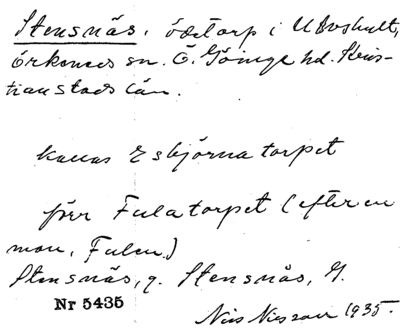 Stensnäs, ödetorp i Udvshult,
Örkeneds sn. Ö. Göinge hd. Kris-
tianstads län.
kallas Esbjörnatorpet
förr Fulatorpet (efter en
man, Fulen.)
Stensnäs, g. Stensnäs, G.
Nr 5435
Nils Nilsson 1935.